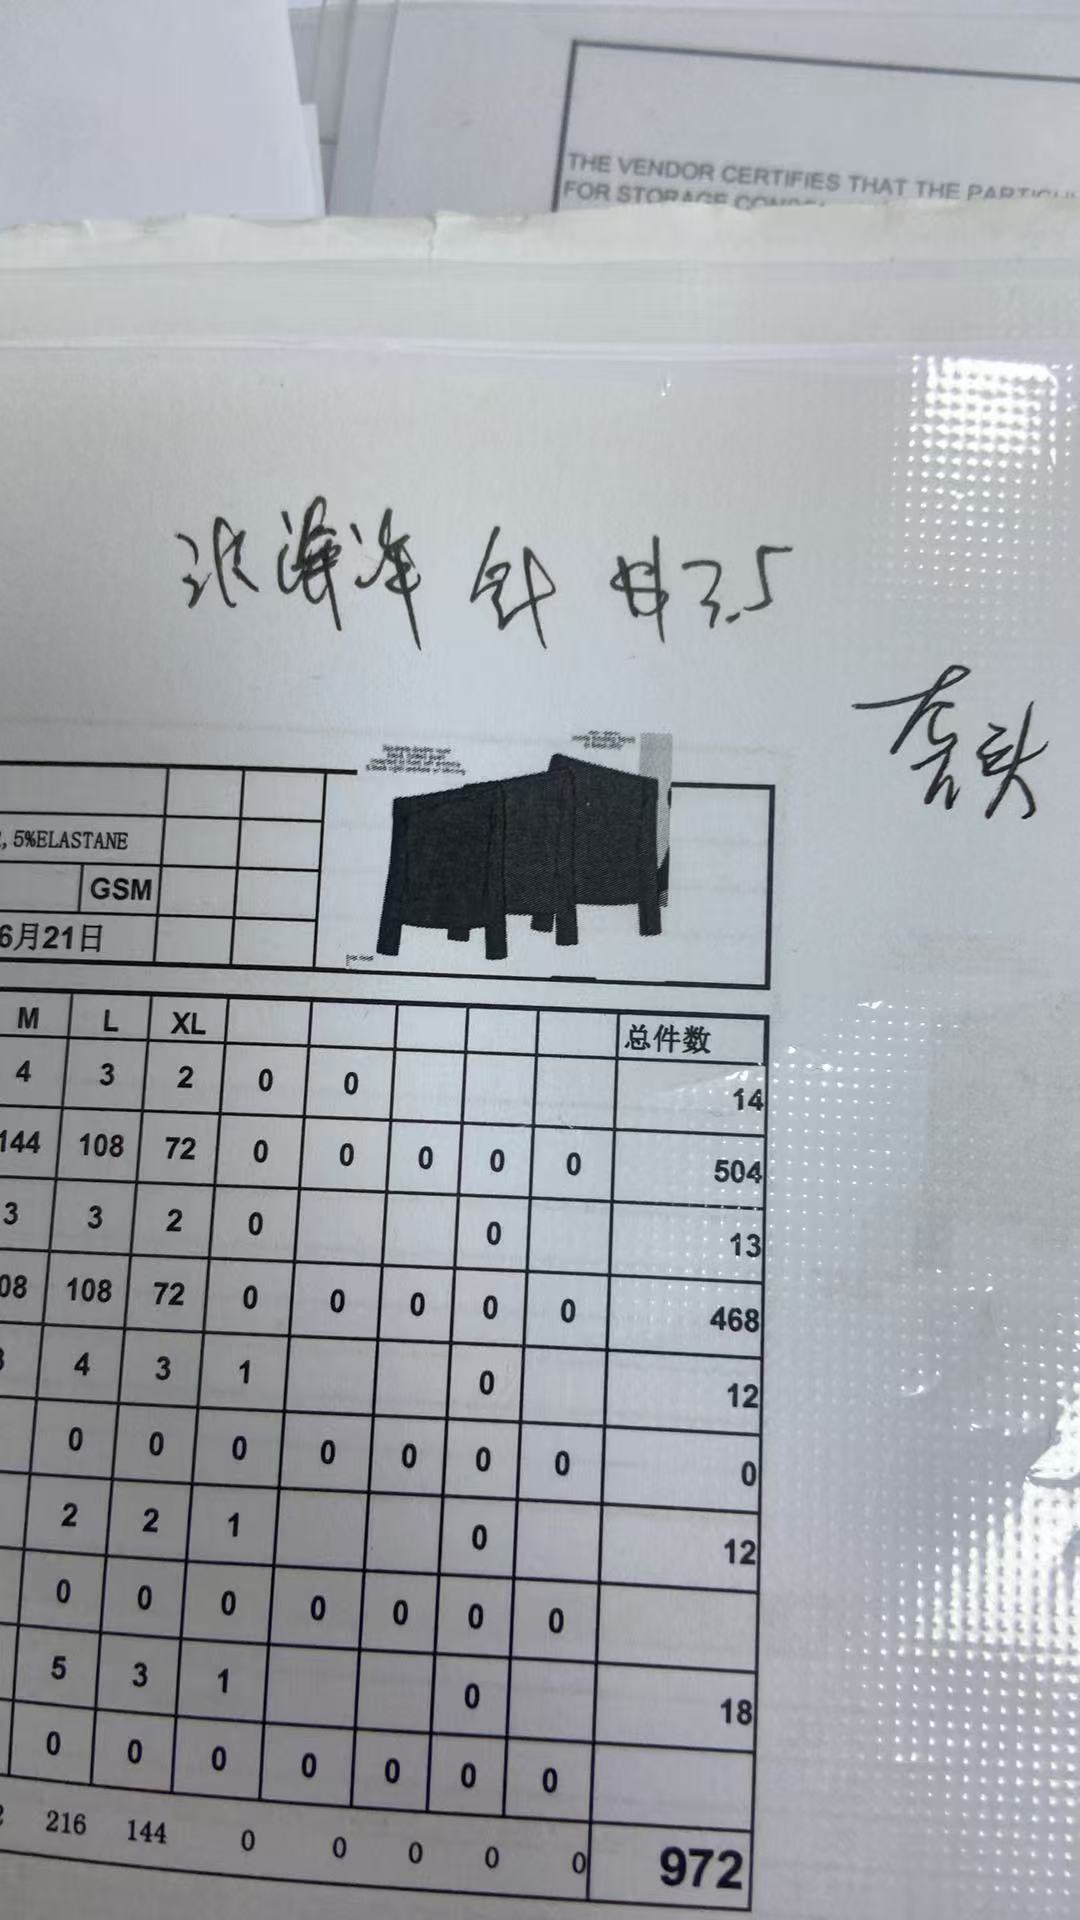 THE VENDOR CERTIFIES THAT THE
FOR STORAGE
针 #3.5
头
5%ELASTANE
GSM
6月21日
M L XL 总件数
4 3 2 0 0 14
144 108 72 0 0 0 0 0 504
3 3 2 0 0 13
08 108 72 0 0 0 0 0 468
4 3 1 0 12
0 0 0 0 0 0 0 0
2 2 1 0 12
0 0 0 0 0 0 0
5 3 1 0 18
0 0 0 0 0 0 0
216 144 0 0 0 0 0 972